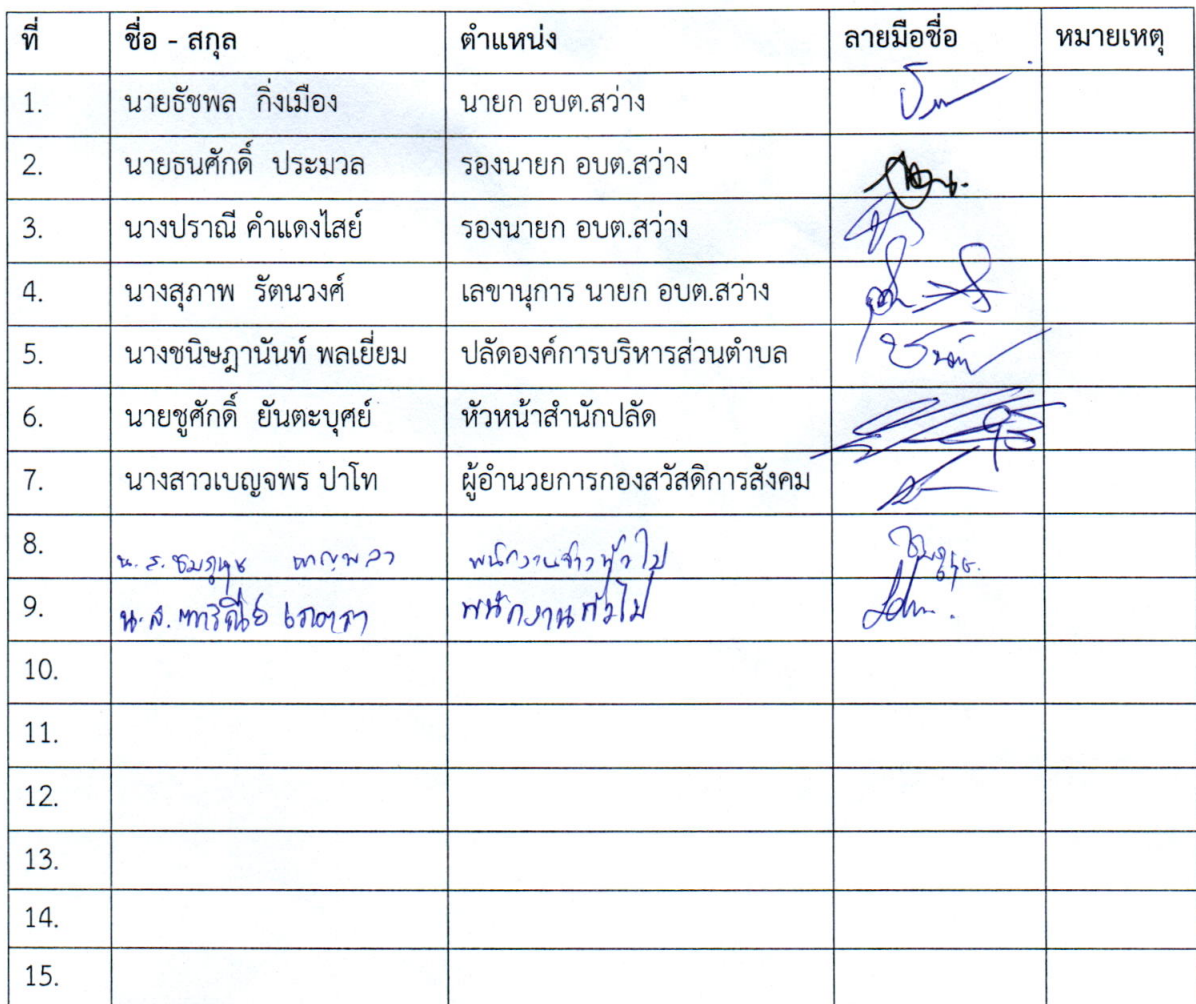 ที่ ชื่อ - สกุล ตำแหน่ง ลายมือชื่อ หมายเหตุ
1. นายธัชพล กิ่งเมือง นายก อบต.สว่าง
2. นายธนศักดิ์ ประมวล รองนายก อบต.สว่าง
3. นางปราณี คำแดงไสย์ รองนายก อบต.สว่าง
4. นางสุภาพ รัตนวงศ์ เลขานุการ นายก อบต.สว่าง
5. นางชนิษฎานันท์ พลเยี่ยม ปลัดองค์การบริหารส่วนตำบล
6. นายชูศักดิ์ ยันตะบุศย์ หัวหน้าสำนักปลัด
7. นางสาวเบญจพร ปาโท ผู้อำนวยการกองสวัสดิการสังคม
8. น.ส. พนักงานจ้างทั่วไป
9. น.ส. พนักงานทั่วไป
10.
11.
12.
13.
14.
15.